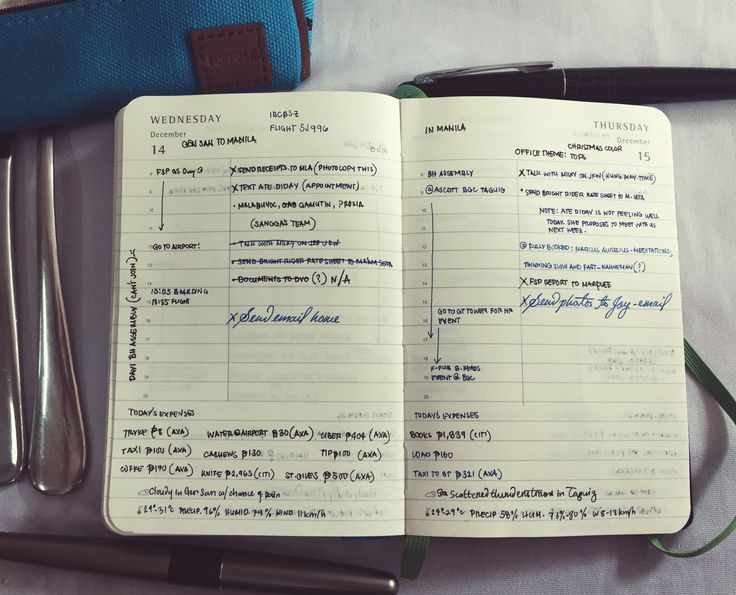 PURPOSE
WEDNESDAY
December
14
GEN SAN TO MANILA
FLIGHT 5J996
8 F&P GS Day 3
9
10
11
12 GO TO AIRPORT!
13
14
15:05 BOARDING
15:35 FLIGHT
16
17
18
19
20
DAY 1 BH ASSEMBLY (CAN'T JOIN) :(
X SEND RECEIPTS TO MLA (PHOTOCOPY THIS)
X TEXT ATE DIDAY (APPOINTMENT)
• MALABUYOC, GAMUTIN,
(SANGGA'S TEAM)
• TALK WITH MILKY ON JFW
• SEND BRIGHT RIDER RATE SHEET TO MA'AM
• DOCUMENTS TO DVO (?) N/A
X Send email home
TODAY'S EXPENSES
TRYKE ₱8 (AXA) WATER@AIRPORT ₱30 (AXA) UBER ₱404 (AXA)
TAXI ₱150 (AXA) CASHEWS ₱130 TIP ₱100 (AXA)
COFFEE ₱140 (AXA) KNIFE ₱2,965 (CITI) ST. GILES ₱500 (AXA)
Cloudy in Gen San w/ chance of rain
24°-31°C PRECIP. 96% HUMID. 79% WIND 11km/h
IN MANILA
THURSDAY
December
15
OFFICE THEME: CHRISTMAS COLOR
TOPS
8 BH ASSEMBLY
9 @ ASCOTT BGC TAGUIG
10
11
12
13
14
15
GO TO GT TOWER FOR HR
EVENT
17
18
K-PUB B. HEADS
EVENT @ BGC
20
X TALK WITH MILKY ON JFW (KUNG MAY TIME)
• SEND BRIGHT RIDER RATE SHEET TO M.
NOTE: ATE DIDAY IS NOT FEELING WELL
TODAY. SHE PROPOSES TO MEET WITH US
NEXT WEEK.
@ FULLY BOOKED: MARCUS AURELIUS - MEDITATIONS,
THINKING SLOW AND FAST - KAHNEMAN (?)
X F&P REPORT TO MARQUEE
X Send photos to Joy - email
TODAY'S EXPENSES
BOOKS ₱1,839 (CITI)
LOAD ₱100
TAXI TO GT ₱321 (AXA)
Scattered thunderstorms in Taguig
24°-29°C PRECIP 58% HUM. 73%-80% WS-13km/h